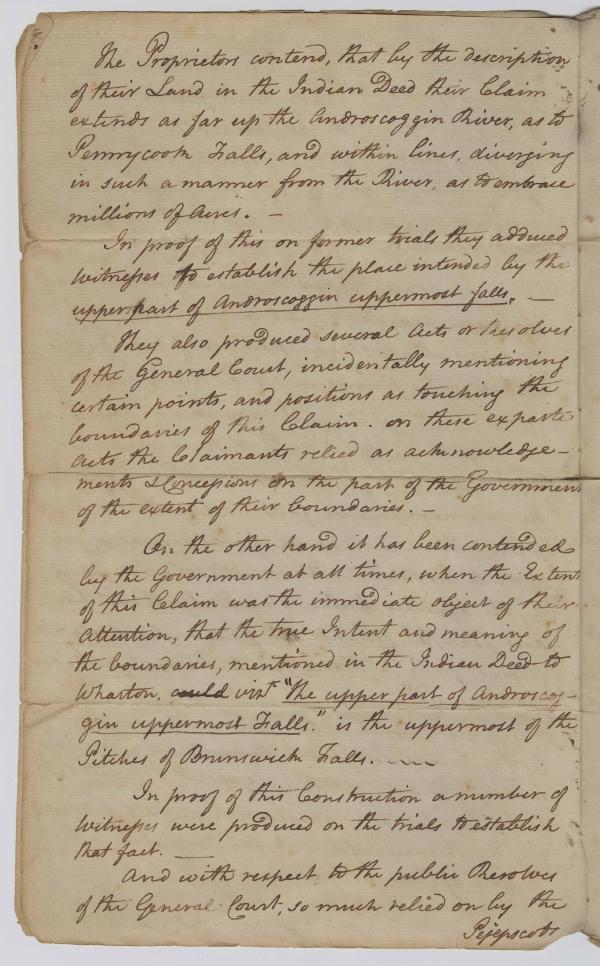 The Proprietors contend, that by the description
of their Land in the Indian Deed their Claim
extends as far up the Androscoggin River, as to
Pennycook Falls, and within lines, diverging
in such a manner from the River, as to embrace
millions of Acres. —
In proof of this on former trials they adduced
witnesses to establish the place intended by the
upper part of Androscoggin uppermost falls. —
They also produced several Acts or Resolves
of the General Court, incidentally mentioning
certain points, and positions as touching the
boundaries of this Claim. on these exparte
acts the Claimants relied as acknowledge-
ments & Concessions on the part of the Government
of the extent of their boundaries. —
On the other hand it has been contended
by the Government at all times, when the Extent
of this Claim was the immediate object of their
Attention, that the true Intent and meaning of
the boundaries, mentioned in the Indian Deed to
Wharton, could vizt. "the upper part of Androscog-
gin uppermost Falls." is the uppermost of the
Pitches of Brunswick Falls. —
In proof of this Construction a number of
witnesses were produced on the trials to establish
that fact. —
And with respect to the public Resolves
of the General Court, so much relied on by the
Pejepscots